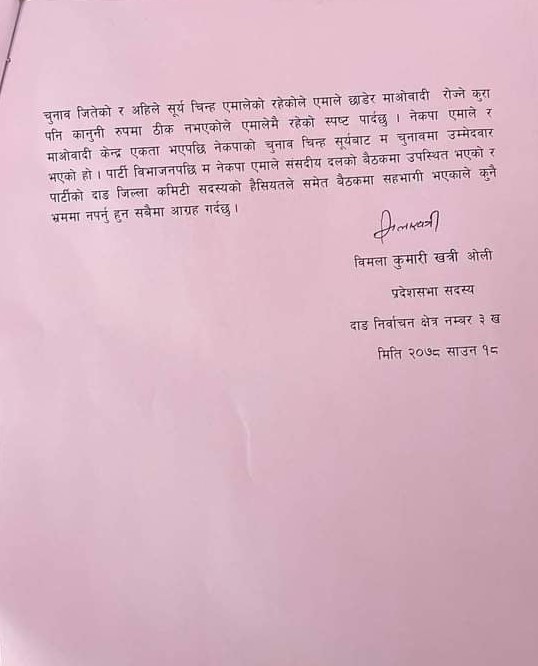 चुनाव जितेको र अहिले सूर्य चिन्ह एमालेको रहेकोले एमाले छाडेर माओवादी रोज्ने कुरा
पनि कानुनी रुपमा ठीक नभएकोले एमालेमै रहेको स्पष्ट पार्दछु । नेकपा एमाले र
माओवादी केन्द्र एकता भएपछि नेकपाको चुनाव चिन्ह सूर्यबाट म चुनावमा उम्मेदवार
भएको हो । पार्टी विभाजनपछि म नेकपा एमाले संसदीय दलको बैठकमा उपस्थित भएको र
पार्टीको दाङ जिल्ला कमिटी सदस्यको हैसियतले समेत बैठकमा सहभागी भएकाले कुनै
भ्रममा नपर्नु हुन सबैमा आग्रह गर्दछु ।
विमला कुमारी खत्री ओली
प्रदेशसभा सदस्य
दाङ निर्वाचन क्षेत्र नम्बर ३ ख
मिति २०७८ साउन १८